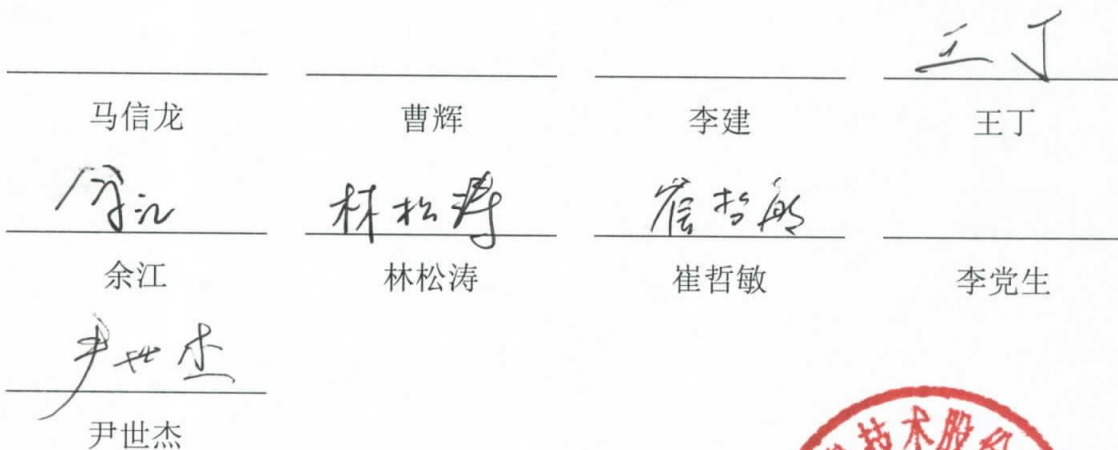 王丁
马信龙 曹辉 李建 王丁
余江 林松涛 崔哲敏
余江 林松涛 崔哲敏 李党生
尹世杰
尹世杰
技术股份